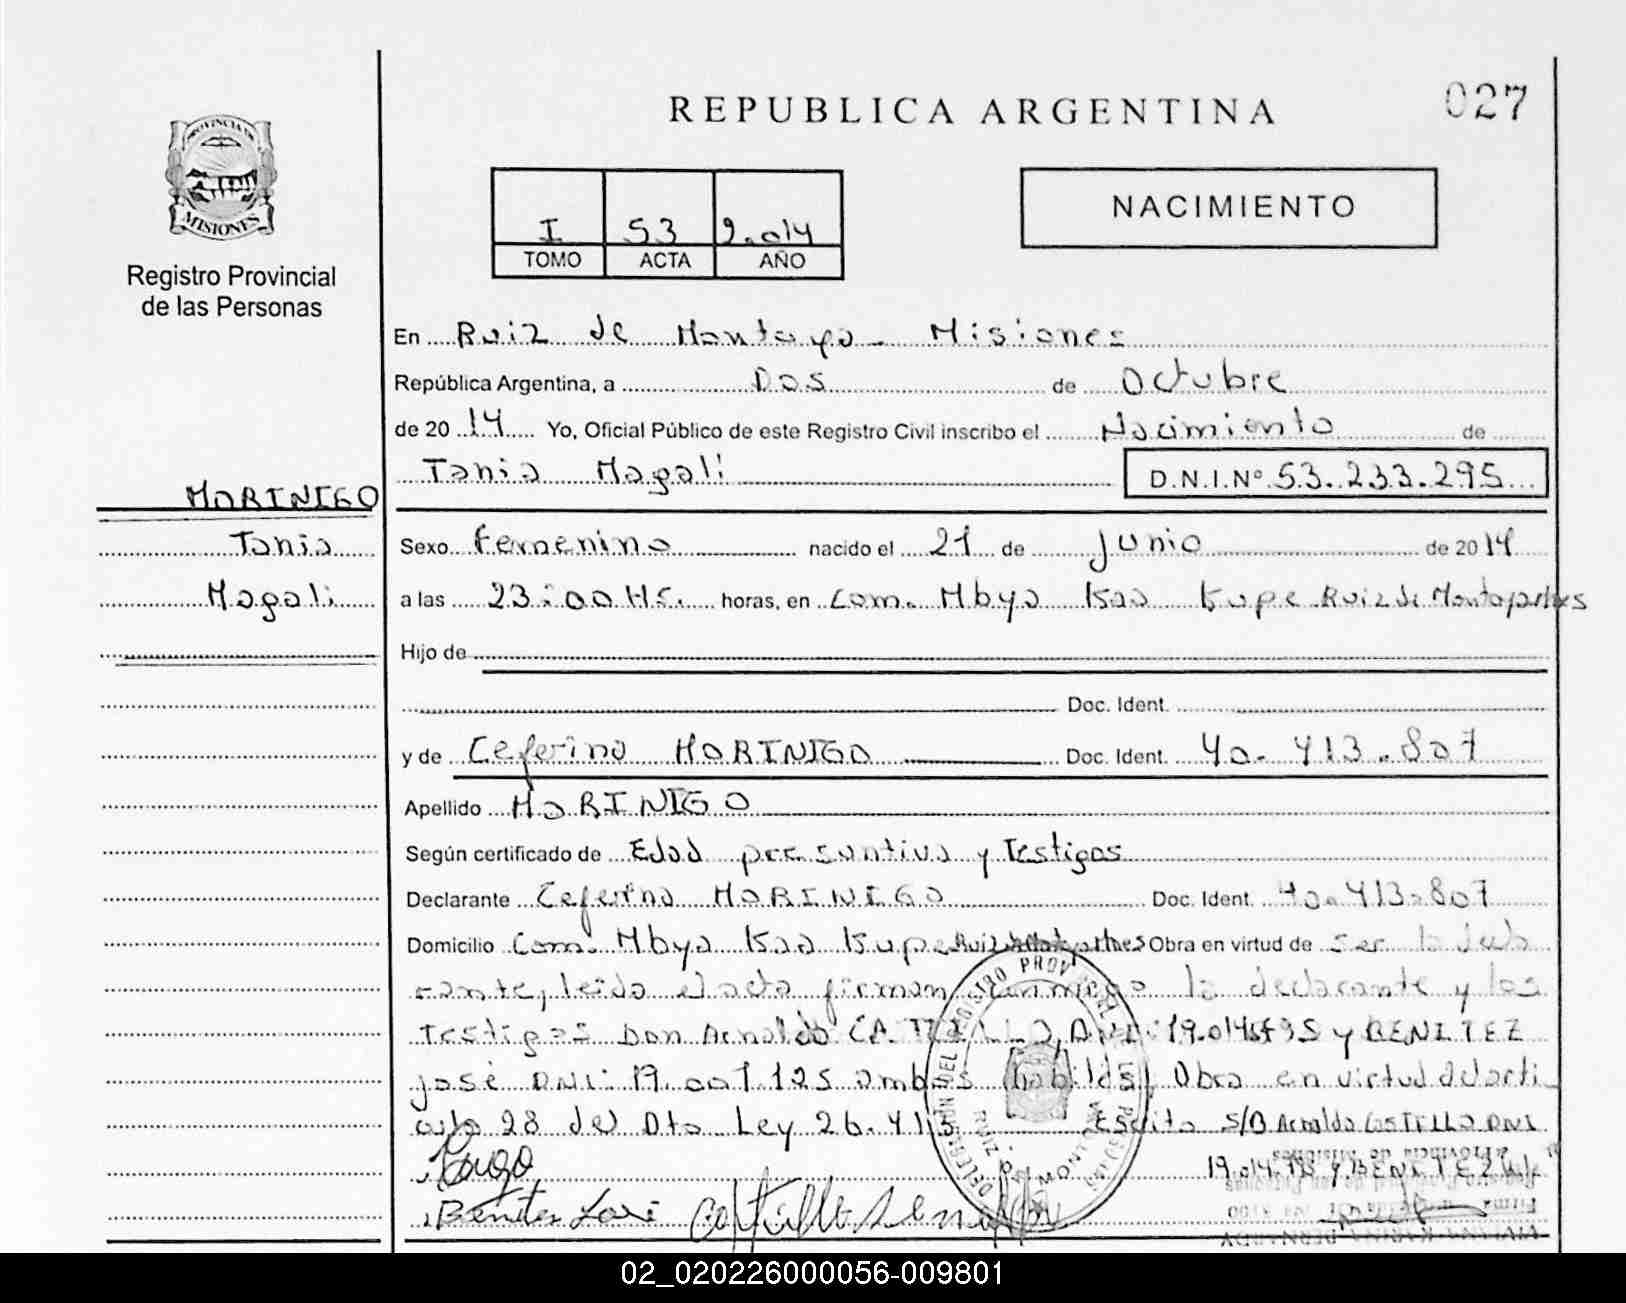 027
REPUBLICA ARGENTINA
PROVINCIA DE
MISIONES
Registro Provincial
de las Personas
NACIMIENTO
I 53 2.014
TOMO ACTA AÑO
En Ruiz de Montoya - Misiones
República Argentina, a Dos de Octubre
de 2014 Yo, Oficial Público de este Registro Civil inscribo el Nacimiento de
Tania Magali D.N.I.Nº 53.233.295
MORINIGO
Tania
Magali
Sexo Femenino nacido el 21 de Junio de 2014
a las 23:00 Hs. horas, en Com. Mbya Kaa Kupe Ruiz de Montoya
Hijo de
Doc. Ident.
y de Ceferino MORINIGO Doc. Ident. 40.413.807
Apellido MORINIGO
Según certificado de Edad presuntiva y Testigos
Declarante Ceferino MORINIGO Doc. Ident. 40.413.807
Domicilio Com. Mbya Kaa Kupe Obra en virtud de ser la decla
rante, leido el acta firman conmigo la declarante y los
Testigos Don Arnaldo CASTILLO, DNI: y BENITEZ
José DNI: 19.001.125 ambos habiles, Obra en virtud del arti
culo 28 del Dto Ley 26.413 Escrito S/B Arnaldo CASTILLO DNI
y BENITEZ
Benitez José Castillo
02_020226000056-009801